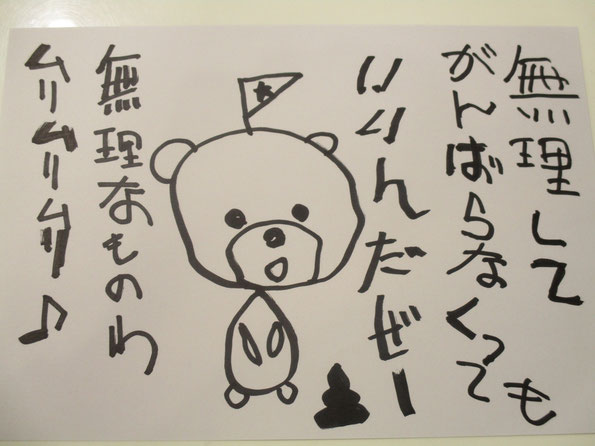 無理して
がんばらなくっても
いいんだぜー
無理なものわ
ムリムリムリ♪